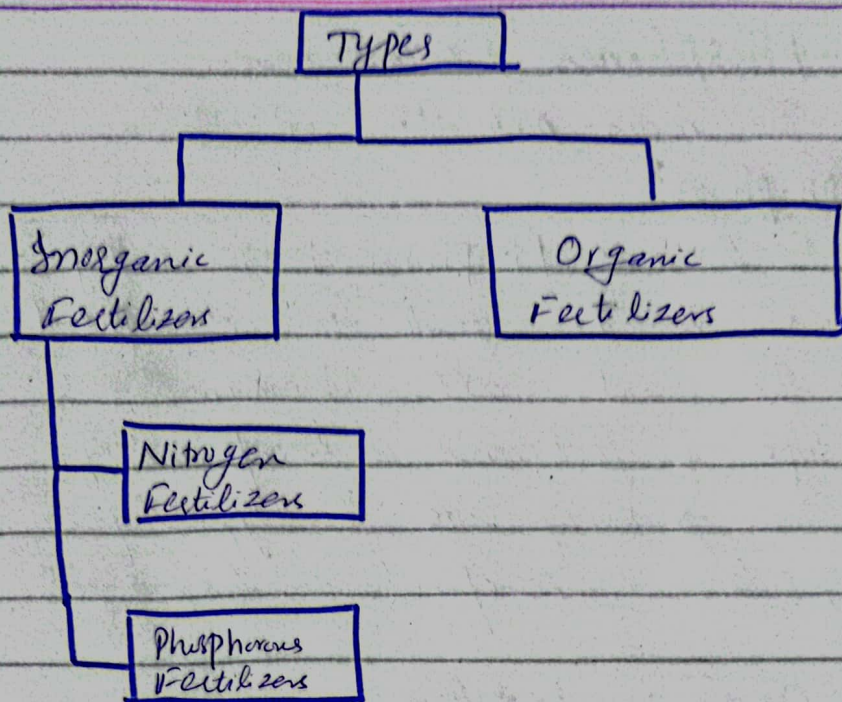 Types
Inorganic
Fertilizers
Organic
Fertilizers
Nitrogen
Fertilizers
Phosphorous
Fertilizers